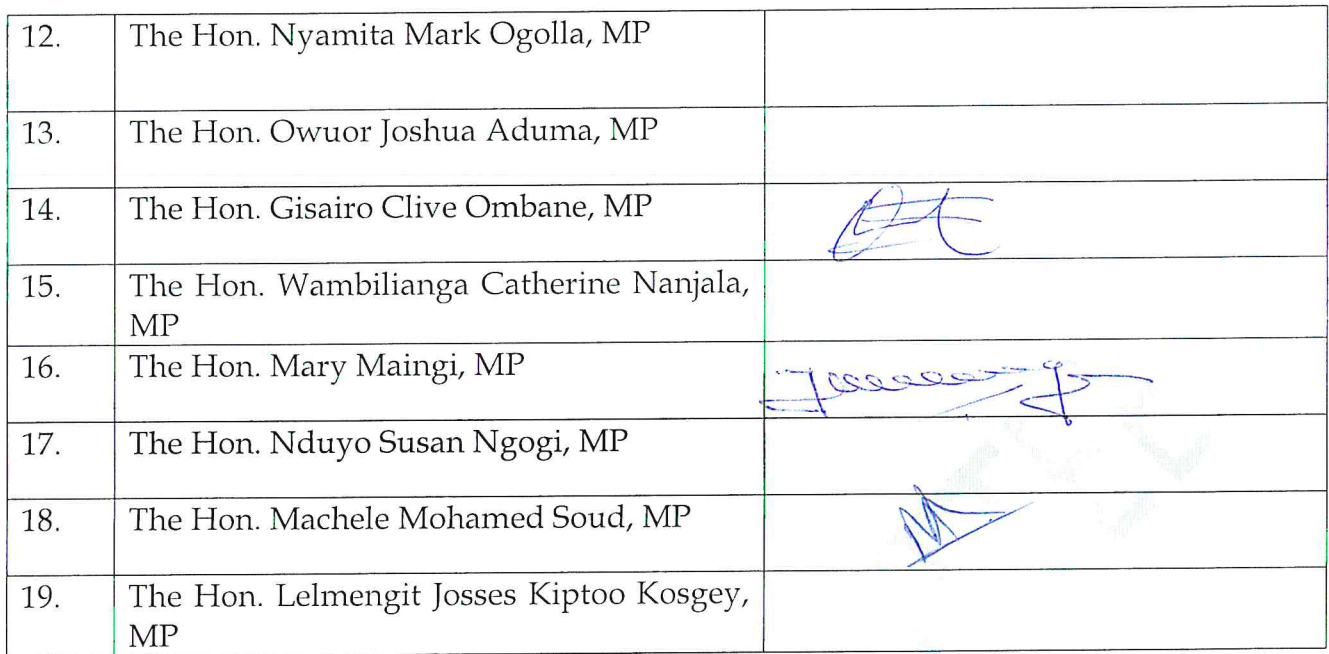 12. The Hon. Nyamita Mark Ogolla, MP
13. The Hon. Owuor Joshua Aduma, MP
14. The Hon. Gisairo Clive Ombane, MP
15. The Hon. Wambilianga Catherine Nanjala,
MP
16. The Hon. Mary Maingi, MP
17. The Hon. Nduyo Susan Ngogi, MP
18. The Hon. Machele Mohamed Soud, MP
19. The Hon. Lelmengit Josses Kiptoo Kosgey,
MP